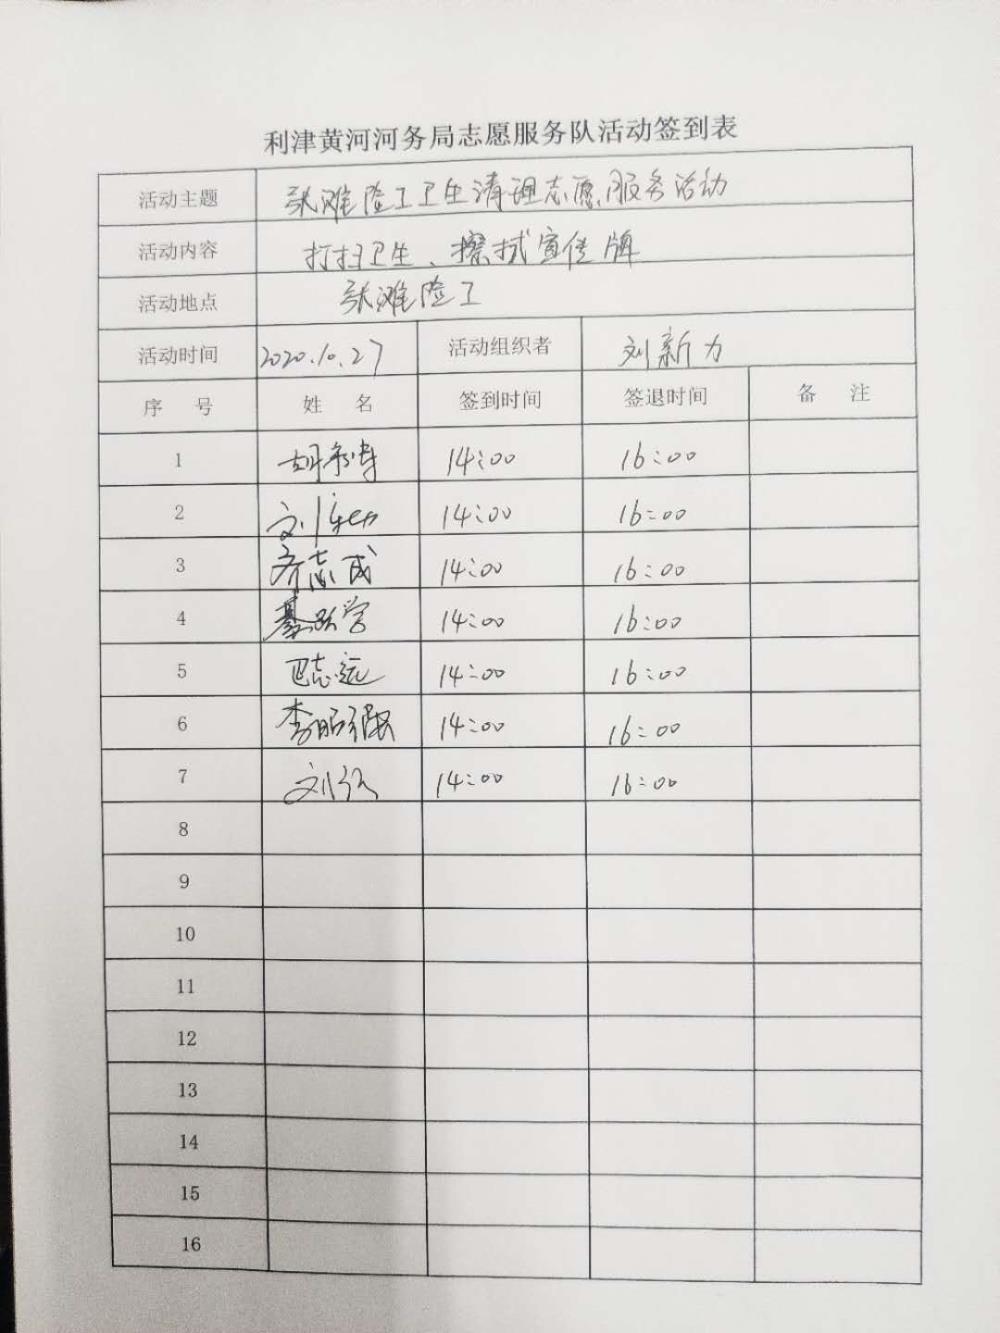 利津黄河河务局志愿服务队活动签到表
活动主题 张滩险工卫生清理志愿服务活动
活动内容 打扫卫生、擦拭宣传牌
活动地点 张滩险工
活动时间 2020.10.27 活动组织者 刘新力
序 号 姓 名 签到时间 签退时间 备 注
1 14:00 16:00
2 刘 14:00 16:00
3 齐志成 14:00 16:00
4 14:00 16:00
5 巴志远 14:00 16:00
6 李 14:00 16:00
7 刘 14:00 16:00
8
9
10
11
12
13
14
15
16